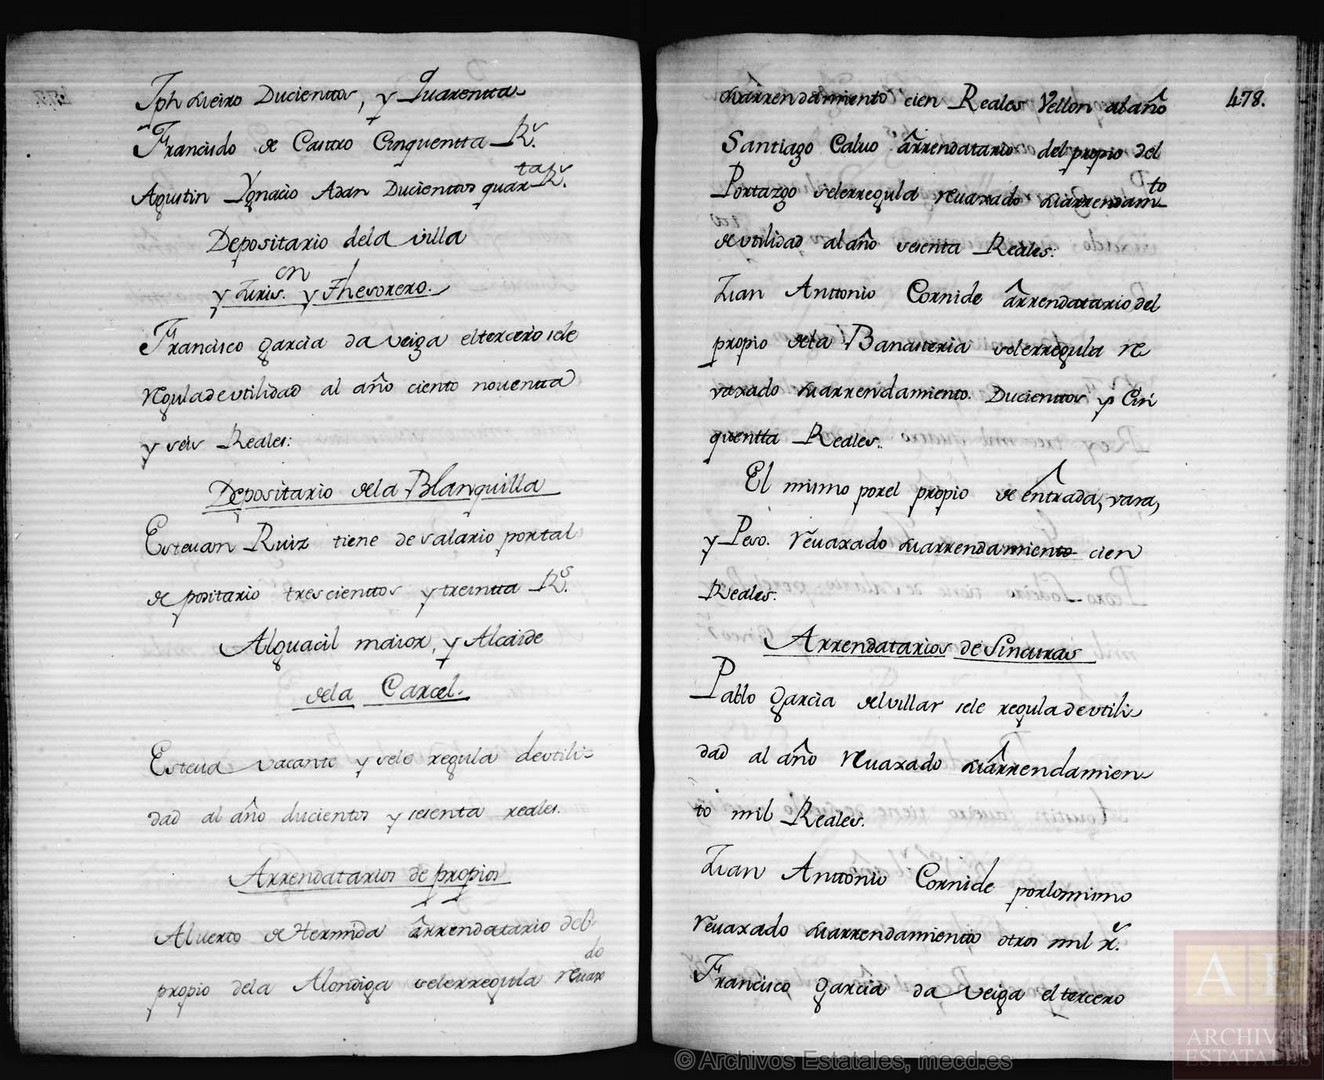 Jph Sueiro Ducienttos, y Quarentta
Francisco de Castro Cinquentta Rs.
Agustin Ygnacio Adan Ducienttos quarta Rs.
Depositario dela villa
y Juris.on y Thesorero.
Francisco Garcia da Veiga eltercero sele
regula de utilidad al año ciento noventta
y seis Reales:
Depositario dela Blanquilla
Estevan Ruiz tiene de salario por tal
depositario trescienttos y treintta Rs.
Alguacil maior, y Alcaide
dela Carcel.
Esteva vacante y sele regula de utili-
dad al año ducientos y sesenta reales.
Arrendatarios de propios
Alverto de Hermida arrendatario del
propio dela Alondiga selerregula revaxdo
su arrendamiento cien Reales Vellon al año
478.
Santiago Calvo arrendatario del propio del
Portazgo selerregula revaxado su arrendamto
de utilidad al año sesenta Reales:
Juan Anttonio Cornide arrendatario del
propio dela Banasteria selerregula re
vaxado su arrendamiento. Ducienttos y Cin
quentta Reales.
El mismo porel propio de entrada, vara,
y Peso. revaxado su arrendamiento cien
Reales:
Arrendatarios de Sincuras
Pablo Garcia del villar sele regula de utili
dad al año revaxado su arrendamien
to mil Reales.
Juan Anttonio Cornide por lo mismo
revaxado su arrendamiento otros mil rs.
Francisco Garcia da Veiga el tercero
© Archivos Estatales, mecd.es
AE
ARCHIVOS
ESTATALES